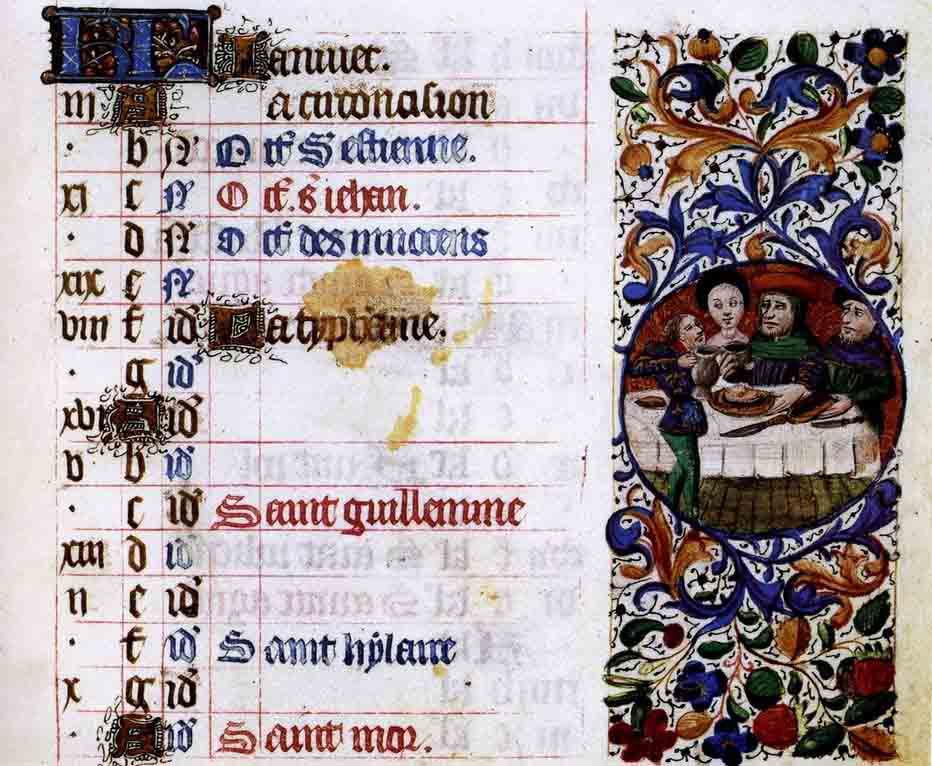 KL Januier.
iii A La circoncision
. b N O ct' S estienne.
xi c N O ct'. s' iehan.
. d N O ct' des innocens
xix e N
viii f id' La typhaine.
. g id'
xvi A id'
v b id'
. c id' Saint guillemme
xiii d id'
ii e id'
. f id' Saint hylaire
x g id'
. A id' Saint mor.